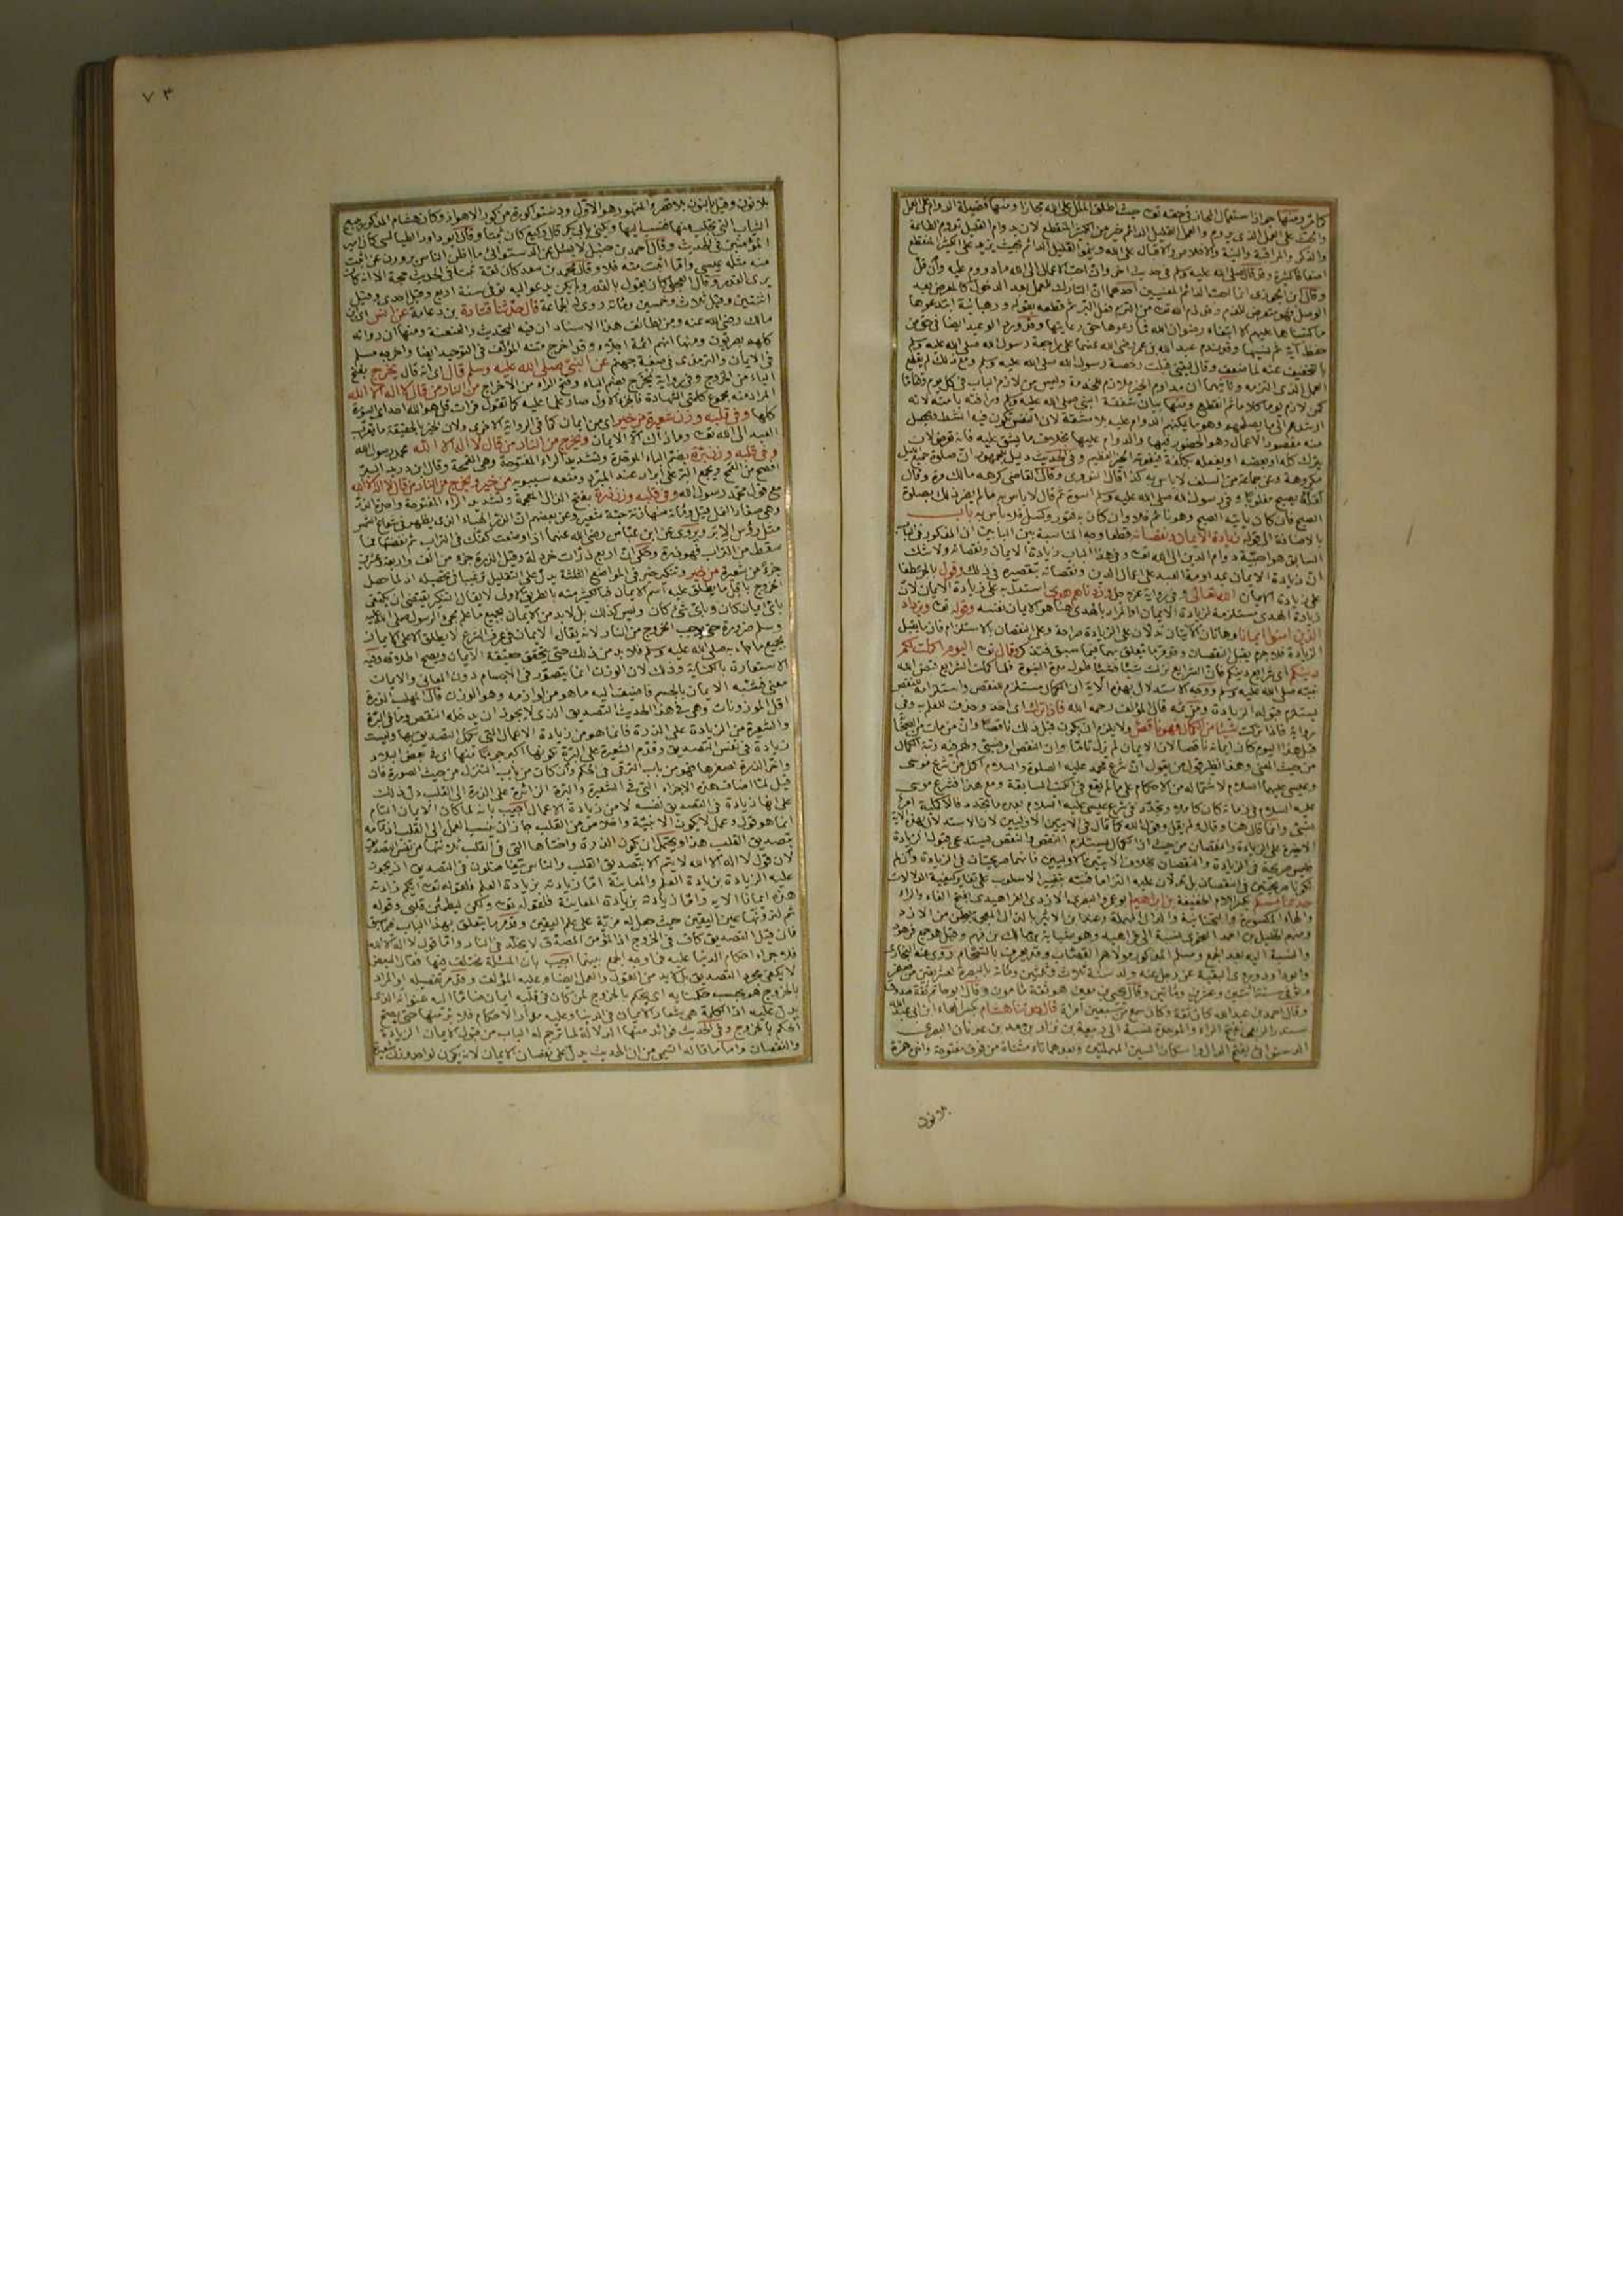 ٧٣
كما مر ومنها جواز استعمال المجاز في حقه تعالى حيث اطلق الملل على الله مجازا ومنها فضيلة الدوام على العمل
والحث على العمل الذي يدوم والعمل القليل الدائم خير من الكثير المنقطع لان بدوام القليل تدوم الطاعة
والذكر والمراقبة والنية والاخلاص والاقبال على الله وينمو القليل الدائم بحيث يزيد على الكثير المنقطع
اضعافا كثيرة وقد قال صلى الله عليه وسلم في حديث اخر وان احب الاعمال الى الله ما دووم عليه وان قل
وقال ابن الجوزي انما احب الدائم لمعنيين احدهما ان التارك للعمل بعد الدخول كالمعرض بعد
الوصل فهو متعرض للذم وقد ذم الله تعالى من التزم فعل البر ثم قطعه بقوله ورهبانية ابتدعوها
ما كتبناها عليهم الا ابتغاء رضوان الله فما رعوها حق رعايتها وقد ورد الوعيد ايضا في حق من
حفظ آية ثم نسيها وقد ندم عبد الله بن عمر رضي الله عنهما على مراجعة رسول الله صلى الله عليه وسلم
بالتخفيف عنه لما ضعف وقال ليتني قبلت رخصة رسول الله صلى الله عليه وسلم ومع ذلك لم يقطع
العمل الذي التزمه وثانيهما ان مداوم الخير ملازم للخدمة وليس من لازم الباب في كل يوم وقتا ما
كمن لازم يوما كاملا ثم انقطع ومنها بيان شفقة النبي صلى الله عليه وسلم ورافته بامته لانه
ارشدهم الى ما يصلحهم وهو ما يمكنهم الدوام عليه بلا مشقة لان النفس تكون فيه انشط فيحصل
منه مقصود الاعمال وهو الحضور فيها والدوام عليها بخلاف ما يشق عليه فانه تعرض لان
يترك كله او بعضه او يفعله بكلفة فيفوته الخير العظيم وفي الحديث دليل للجمهور ان صلوة جميع الليل
مكروهة وعن جماعة من السلف لا باس به كذا قال النووي وقال القاضي كرهه مالك مرة وقال
لعله يصبح مغلوبا وفي رسول الله صلى الله عليه وسلم اسوة ثم قال لا باس به ما لم يضر ذلك بصلوة
الصبح فان كان ياتيه الصبح وهو نائم فلا وان كان به فتور وكسل فلا باس به باب
بالاضافة الى قوله زيادة الايمان ونقصانه قطعا وجه المناسبة بين البابين ان المذكور في الباب
السابق هو احبية دوام الدين الى الله تعالى وفي هذا الباب زيادة الايمان ونقصانه ولا شك
ان زيادة الايمان بمداومة العبد على اعمال الدين ونقصانه بتقصيره في ذلك وقول بالجر عطفا
على زيادة الايمان الله تعالى وفي رواية عز وجل وزدناهم هدى استدل به على زيادة الايمان لان
زيادة الهدى مستلزمة لزيادة الايمان او المراد بالهدى هنا هو الايمان نفسه وقوله تعالى ويزداد
الذين امنوا ايمانا وهاتان الايتان تدلان على الزيادة صراحة وعلى النقصان بالاستلزام فان ما يقبل
الزيادة فلا جرم يقبل النقصان وقد مر ما يتعلق بهما فيما سبق فتذكر وقال تعالى اليوم اكملت لكم
دينكم اي شرائع دينكم فان الشرائع نزلت شيئا فشيئا طول مدة النبوة فلما كملت الشرائع قبض الله
نبيه صلى الله عليه وسلم ووجه الاستدلال بهذه الآية ان الكمال مستلزم للنقص واستلزامه للنقص
يستلزم قبوله الزيادة ومن ثمه قال المؤلف رحمه الله فاذا ترك اي احد وحذف للعلم به وفي
رواية فاذا تركت شيئا من الكمال فهو ناقص ولا يلزم ان يكون قبل ذلك ناقصا وان من مات من الصحابة
قبل هذا اليوم كان ايمانه ناقصا لان الايمان لم يزل تاما وان النقص امر نسبي
من حيث المعنى وهذا نظير قول من يقول ان شرع محمد عليه الصلوة والسلام اكمل من شرع موسى
وعيسى عليهما السلام لاشتماله من الاحكام على ما لم يقع في الكتب السابقة ومع هذا فشرع موسى
عليه السلام في زمانه كان كاملا وتجدد في شرع عيسى عليه السلام بعده ما تجدد فالاكملية امر
نسبي وانما قال هنا وقال ولم يقل وقول الله كما قال في الايتين الاوليين لان الاستدلال بهذه الآية
حدثنا مسلم بكسر اللام الخفيفة بن ابراهيم ابو عمرو البصري الازدي الفراهيدي بفتح الفاء والراء
والهاء المكسورة والتحتانية والدال المهملة وعند ابن الاثير بالذال المعجمة بطن من الازد
ومنهم الخليل بن احمد
وابو داود وروى البقية عن رجل عنه ولد سنة ثلاث وثلثين ومائة بالبصرة
وتوفي سنة اثنتين وعشرين ومائتين وقال يحيى بن معين هو ثقة مامون وقال ابو حاتم ثقة صدوق
وقال احمد بن عبد الله كان ثقة وكان سمع من سبعين امراة قال حدثنا هشام بكسر الهاء ابن ابي عبد الله
سندر الربعي بفتح الراء والموحدة نسبة الى ربيعة بن نزار بن معد بن عدنان البصري
الدستوائي بفتح الدال واسكان السين المهملتين وبعدهما تاء مثناة من فوق مفتوحة واخره همزة
بلا نون
بلا نون وقيل بالنون بلا همز والمشهور هو الاول ودستوا كورة من كور الاهواز وكان هشام المذكور يبيع
الثياب التي تجلب منها فنسب اليها ويكنى بابي بكر قال وكيع كان ثبتا وقال ابو داود الطيالسي كان امير
المؤمنين في الحديث وقال احمد بن حنبل لا يسئل عن الدستوائي ما اظن الناس يروون عن اثبت
منه مثله عيسى واما اثبت منه فلا وقال محمد بن سعد كان ثقة ثبتا في الحديث حجة الا انه كان
يرى القدر وقال العجلي كان يقول بالقدر ولم يكن يدعو اليه توفي سنة اربع وقيل احدى وقيل
اثنتين وقيل ثلاث وخمسين ومائة روى له الجماعة قال حدثنا قتادة بن دعامة عن انس اي ابن
مالك رضي الله عنه ومن لطائف هذا الاسناد ان فيه التحديث والعنعنة ومنها ان رواته
كلهم بصريون ومنها انهم ائمة اجلاء وقد اخرج متنه المؤلف في التوحيد ايضا واخرجه مسلم
في الايمان والترمذي في صفة جهنم عن النبي صلى الله عليه وسلم قال اي انه قال يخرج بفتح
الياء من الخروج وفي رواية يخرج بضم الياء وفتح الراء من الاخراج من النار من قال لا اله الا الله
المراد منه مجموع كلمتي الشهادة فالجزء الاول صار علما عليه كما تقول قرات قل هو الله احد اي السورة
كلها وفي قلبه وزن شعيرة من خير اي من ايمان كما في الرواية الاخرى ولان الخير بالحقيقة ما يقرب
العبد الى الله تعالى وما ذاك الا الايمان ويخرج من النار من قال لا اله الا الله محمد رسول الله
وفي قلبه وزن برة بضم الباء الموحدة وتشديد الراء المفتوحة وهي القمحة وقال ابن دريد البر
افصح من القمح ويجمع البر على ابرار عند المبرد ومنعه سيبويه من خير ويخرج من النار من قال لا اله الا الله
مع قول محمد رسول الله وفي قلبه وزن ذرة بفتح الذال المعجمة وتشديد الراء المفتوحة واحدة الذر
وهي صغار النمل قيل ومائة منها زنة حبة شعير وعن بعضهم ان الذر الهباء الذي يظهر في شعاع الشمس
مثل رؤس الابر ويروى عن ابن عباس رضي الله عنهما اذا وضعت كفك في التراب ثم نفضتها فما
سقط من التراب فهو ذرة وحكي ان اربع ذرات خردلة وقيل الذرة جزء من الف واربعة وعشرين
جزءا من شعيرة من خير وتنكير خير في المواضع الثلثة يدل على التقليل ترغيبا في تحصيله اذ لما حصل
الخروج باقل ما يطلق عليه اسم الايمان فبالكثير منه بالطريق الاولى لا يقال التنكير يقتضي ان يكتفي
باي ايمان كان وباي شيء كان وليس كذلك بل لا بد من الايمان بجميع ما علم مجيء الرسول صلى الله عليه
وسلم ضرورة حتى يوجب الخروج من النار لانه يقال الايمان في عرف الشرع لا يطلق الا على الايمان
بجميع ما جاء به صلى الله عليه وسلم فلا بد من ذلك حتى يتحقق حقيقة الايمان ويصح اطلاقه وفيه
الاستعارة بالكناية وذلك لان الوزن انما يتصور في الاجسام دون المعاني والايمان
معنى فشبه الايمان بالجسم فاضيف اليه ما هو من لوازمه وهو الوزن قال المهلب الذرة
اقل الموزونات وهي في هذا الحديث التصديق الذي لا يجوز ان يدخله النقص وما في البرة
والشعيرة من الزيادة على الذرة فانما هو من زيادة الاعمال التي يكمل التصديق بها وليست
زيادة في نفس التصديق وقدم الشعيرة على البرة لكونها اكبر جرما منها اي في بعض البلاد
واخر الذرة لصغرها فهو من باب الترقي في الحكم وان كان من باب التنزل من حيث الصورة فان
قيل لما اضاف هذه الاجزاء التي في الشعيرة والبرة الزائدة على الذرة الى القلب دل ذلك
على انها زيادة في التصديق نفسه لا من زيادة الاعمال اجيب بانه لما كان الايمان التام
انما هو قول وعمل والعمل لا يكون الا بنية واخلاص من القلب جاز ان ينسب العمل الى القلب اذ تمامه
بتصديق القلب هذا ويحتمل ان يكون الذرة واختاها التي في القلب ثلاثتها من نفس التصديق
لان قول لا اله الا الله لا يتم الا بتصديق القلب والناس يتفاضلون في التصديق اذ يجوز
عليه الزيادة بزيادة العلم والمعاينة اما زيادته بزيادة العلم فلقوله تعالى ايكم زادته
هذه ايمانا الاية واما زيادته بزيادة المعاينة فلقوله تعالى ولكن ليطمئن قلبي وقوله
ثم لترونها عين اليقين حيث جعل له مزية على علم اليقين وقد مر ما يتعلق بهذا الباب فيما سبق
فان قيل التصديق كاف في الخروج اذ المؤمن المصدق لا يخلد في النار واما قول لا اله الا الله
فلاجراء احكام الدنيا عليه فما وجه الجمع بينهما اجيب بان المسئلة مختلف فيها فقال البعض
لا يكفي مجرد التصديق بل لا بد من القول والعمل ايضا وعليه المؤلف وقد مر تفصيله او المراد
بالخروج هو بحسب حكمنا به اي يحكم بالخروج لمن كان في قلبه ايمان ضاما اليه عنوانه الذي
يدل عليه اذ الكلمة هي شعار الايمان في الدنيا وعليه مدار الاحكام فلا بد منها حتى يصح
الحكم بالخروج وفي الحديث فوائد منها الدلالة لما ترجم له الباب من قبول الايمان الزيادة
والنقصان واما ما قاله التيمي من ان الحديث يدل على نقصان الايمان لانه يكون لواحد وزن شعيرة